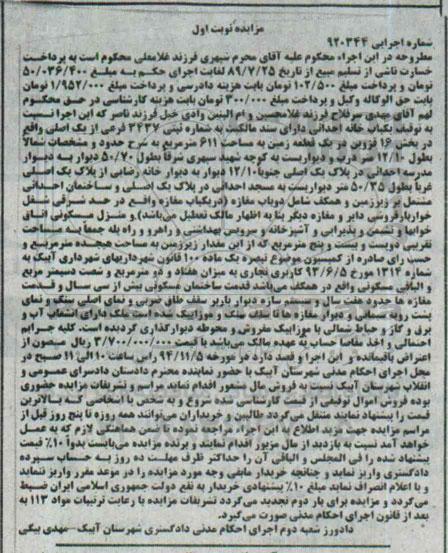 مزایده نوبت اول
شماره اجرایی ۹۲۰۳۴۴
مطروحه در این اجراء محکوم علیه آقای محرم شهیری فرزند غلامعلی محکوم است به پرداخت
خسارت ناشی از تسلیم مبیع از تاریخ ۸۹/۷/۲۵ لغایت اجرای حکم به مبلغ ۵۰/۰۳۶/۴۰۰
تومان و پرداخت مبلغ ۱۰۲/۵۰۰ تومان بابت هزینه دادرسی و پرداخت مبلغ ۱/۹۵۲/۰۰۰ تومان
بابت حق الوکاله وکیل و پرداخت مبلغ ۳۰۰/۰۰۰ تومان بابت هزینه کارشناسی در حق محکوم
لهم آقای مهدی سرفلاح فرزند غلامحسین و ام البنین وادی خیل فرزند ناصر که این اجرا نسبت
به توقیف یکباب خانه احداثی دارای سند مالکیت به شماره ثبتی ۳۴۳۷ فرعی از یک اصلی واقع
در بخش ۱۶ قزوین در یک قطعه زمین به مساحت ۶۱۱ مترمربع به شرح حدود و مشخصات شمالاً
بطول ۱۲/۱۰ متر درب و دیواریست به کوچه شهید سپهری شرقاً بطول ۵۰/۷۰ دیوار به دیوار
مدرسه احداثی در پلاک یک اصلی جنوباً ۱۲/۱۰ دیوار به دیوار خانه رضایی از پلاک یک اصلی
غرباً بطول ۵۰/۳۵ متر دیواریست به مسجد احداثی در پلاک یک اصلی و ساختمان احداثی
مشتمل بر زیرزمین و همکف شامل دوباب مغازه (دریکباب مغازه واقع در حد شرقی شغل
خواربارفروشی دایر و مغازه دیگر بنا به اظهار مالک تعطیل می‌باشد) و منزل مسکونی اتاق
خوابها و نشمن و پذیرایی و آشپزخانه و سرویس بهداشتی و راهرو و راه پله جمعاً به مساحت
تقریبی دویست و بیست و پنج مترمربع که از این مقدار زیرزمین به مساحت هیجده مترمربع و
حسب رای صادره از کمیسیون موضوع تبصره یک ماده ۱۰۰ قانون شهرداریهای شهرداری آبیک به
شماره ۱۳۱۴ مورخ ۹۳/۶/۵ کاربری تجاری به میزان هفتاد و دو مترمربع و شصت دسیمتر مربع
و الباقی مسکونی واقع در همکف می‌باشد قدمت ساختمان مسکونی بیش از سی سال و قدمت
مغازه ها حدود هفت سال و سیستم سازه دیوار باربر سقف طاق ضربی و نمای اصلی بینک و نمای
پشت رویه سیمانی و دیوار مغازه ها تا سقف بینک و موزائیک شده است ملک دارای انشعاب آب و
برق و گاز و حیاط شمالی با موزائیک مفروش و محوطه دیوارگذاری گردیده است. کلیه جرایم
احتمالی و اخذ مفاصا حساب به عهده مالک می‌باشد با قیمت ۳/۷۰۰/۰۰۰/۰۰۰ ریال مصون از
اعتراض باقیمانده و این اجرا و قصد دارد در مورخه ۹۴/۱۱/۵ راس ساعت ۱۰ الی ۱۱ صبح در
محل اجرای احکام مدنی شهرستان آبیک با حضور نماینده محترم دادستان دادسرای عمومی و
انقلاب شهرستان آبیک نسبت به فروش مال مشعور اقدام نماید مراسم و تشریفات مزایده حضوری
بوده فروش اموال توقیفی از قیمت کارشناسی شده شروع و به شخص یا اشخاصی که بالاترین
قیمت را پیشنهاد نمایند منتقل می‌گردد طالبین و خریداران می‌توانند همه روزه تا پنج روز قبل از
مراسم مزایده جهت مزید اطلاع به این اجراء مراجعه نموده تا ضمن هماهنگی لازم که به عمل
خواهد آمد نسبت به بازدید از مال مزبور اقدام نمایند و برنده مزایده می‌بایست بدواً ۱۰٪ قیمت
پیشنهاد شده را فی المجلس و الباقی آن را حداکثر ظرف مهلت ده روز به حساب سپرده
دادگستری واریز نماید و چنانچه خریدار مابقی وجه مورد مزایده را در موعد مقرر واریز ننماید
و یا اعلام انصراف نماید مبلغ ۱۰٪ پیشنهادی خریدار به نفع دولت جمهوری اسلامی ایران ضبط
می‌گردد و مزایده برای بار دوم تجدید می‌گردد تشریفات مزایده با رعایت ترتیبات مواد ۱۱۳ به
بعد از قانون اجرای احکام مدنی صورت می‌گیرد.
دادورز شعبه دوم اجرای احکام مدنی دادگستری شهرستان آبیک – مهدی بیگی